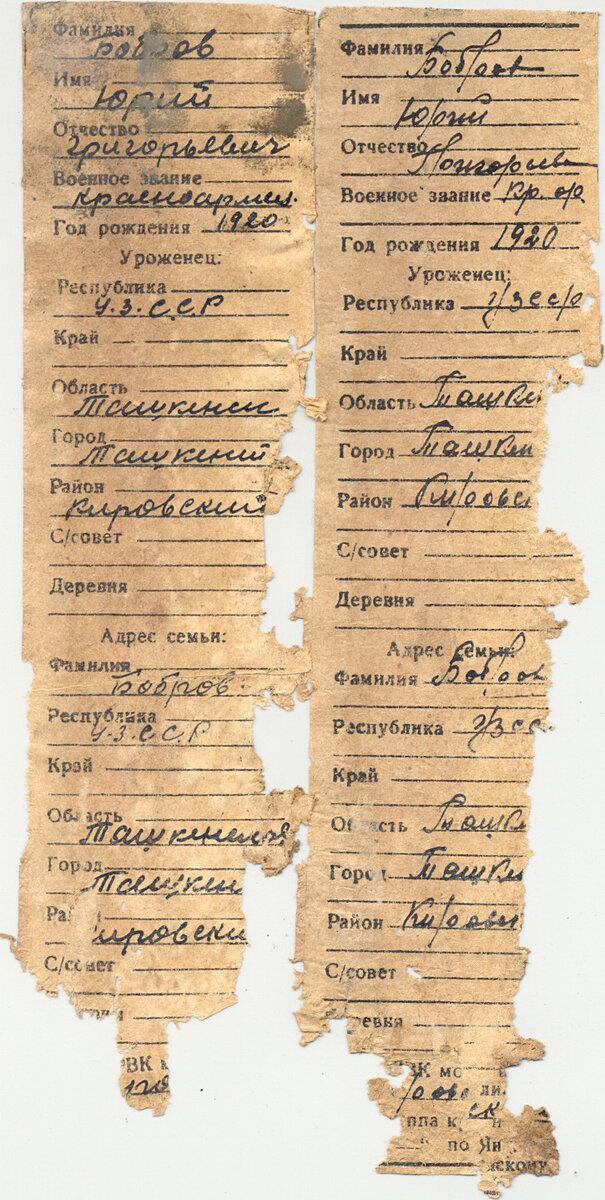 Фамилия
Бобров
Имя
Юрий
Отчество
Григорьевич
Военное звание
красноармеец
Год рождения 1920
Уроженец:
Республика
У.З.С.С.Р
Край
Область
Ташкенск
Город
Ташкент
Район
Кировский
С/совет
Деревня
Адрес семьи:
Фамилия
Бобров
Республика
У.З.С.С.Р
Край
Область
Город
Ра
ировски
С/совет
ВК к
Фамилия Бобров
Имя
Юрий
Отчество
Военное звание Кр. ар
Год рождения 1920
Уроженец:
Республика УЗССР
Край
Область Ташк
Город Ташк
Район
С/совет
Деревня
Адрес семьи:
Фамилия Бобров
Республика УЗСС
Край
Область Ташк
Город Ташк
Район Кировск
С/совет
ревня
ли.
ск
ппа к
по Ян
скому